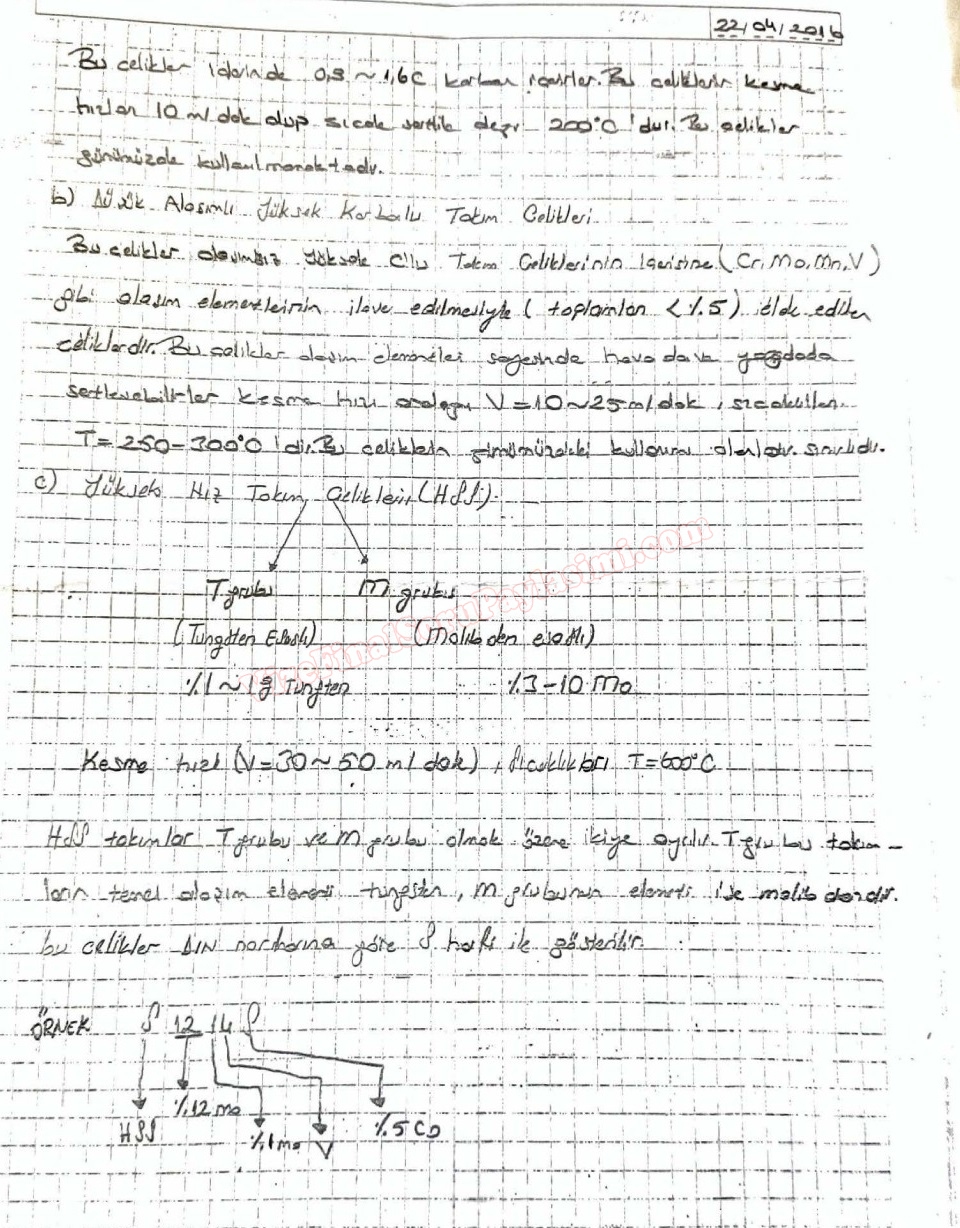 22/04/2016
Bu çelikler içlerinde 0,8 ~ 1,6C karbon içerirler. Bu çeliklerin kesme
hızları 10 m/dak olup sıcak sertlik değeri 200°C'dur. Bu çelikler
günümüzde kullanılmamaktadır.
b) Düşük Alaşımlı Yüksek Karbonlu Takım Çelikleri
Bu çelikler alaşımsız yüksek C'lu Takım Çeliklerinin içerisine (Cr, Mo, Mn, V)
gibi alaşım elementlerinin ilave edilmesiyle (toplamları < %5) elde edilen
çeliklerdir. Bu çelikler alaşım elementleri sayesinde havada ve yağda da
sertleşebilirler kesme hızı aralığı V = 10 ~ 25 m/dak, sıcaklıkları
T = 250 - 300°C'dir. Bu çeliklerin günümüzdeki kullanım alanları sınırlıdır.
c) Yüksek Hız Takım Çelikleri (HSS)
T grubu M grubu
(Tungsten Esaslı) (Molibden esaslı)
%1 ~ 18 Tungsten %3 - 10 Mo
VizeFinalSoruPaylasimi.com
Kesme hızı (V = 30 ~ 50 m/dak), Sıcaklıkları T = 600°C
HSS takımlar T grubu ve M grubu olmak üzere ikiye ayrılır. T grubu takım-
ların temel alaşım elementi tungsten, M grubunun elementi ise molibdendir.
bu çelikler DIN normlarına göre S harfi ile gösterilir.
ÖRNEK S 12 14 S
HSS %12 mo %1 mo V %5 Co